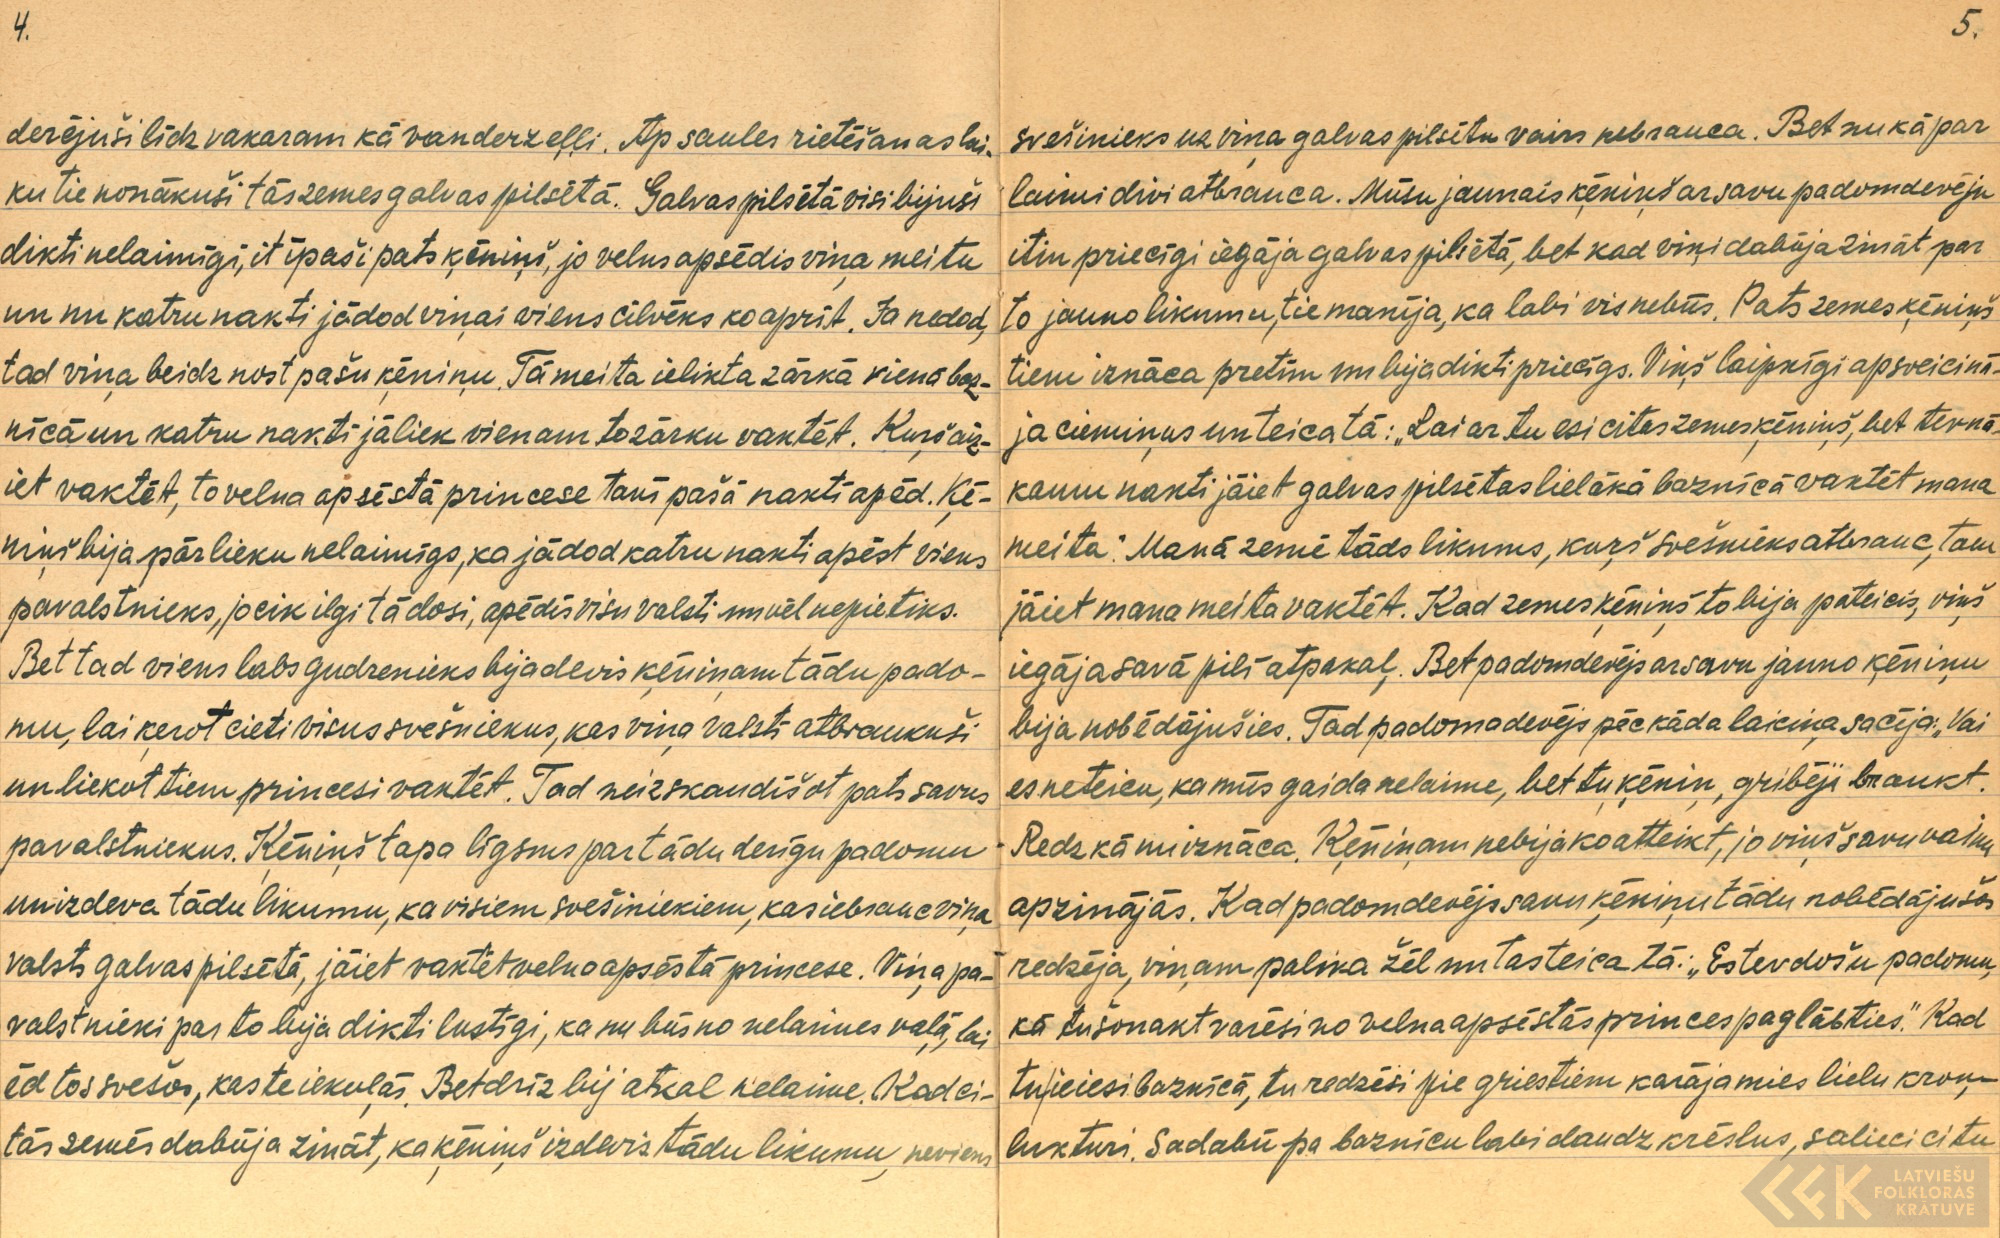 4.
derējuši līdz vakaram kā vanderzeļļi. Ap saules rietēšanas lai-
ku tie nonākuši tās zemes galvas pilsētā. Galvas pilsētā visi bijuši
dikti nelaimīgi, it īpaši pats ķēniņš, jo velns apsēdis viņa meitu
un nu katru nakti jādod viņai viens cilvēks ko aprīt. Ja nedod,
tad viņa beidz nost pašu ķēniņu. Tā meita ielikta zārkā vienā baz-
nīcā un katru nakti jāliek vienam to zārku vaktēt. Kurš aiz-
iet vaktēt, to velna apsēstā princese tanī pašā naktī apēd. Ķē-
niņš bija pārlieku nelaimīgs, ka jādod katru nakti apēst viens
pavalstnieks, jo cik ilgi tā dosi, apēdīs visu valsti un vēl nepietiks.
Bet tad viens labs gudrenieks bija devis ķēniņam tādu pado-
mu, lai ķerot cieti visus svešniekus, kas viņa valstī atbraukuši
un liekot tiem princesi vaktēt. Tad neizskaudīšot pats savus
pavalstniekus. Ķēniņš tapa līgsms par tādu derīgu padomu
un izdeva tādu likumu, ka visiem svešiniekiem, kas iebrauc viņa
valsts galvas pilsētā, jāiet vaktēt velna apsēstā princese. Viņa pa-
valstnieki par to bija dikti lustīgi, ka nu būs no nelaimes vaļā, lai
ēd tos svešos, kas te iekuļās. Bet drīz bij atkal nelaime. Kad ci-
tās zemēs dabūja zināt, ka ķēniņš izdevis tādu likumu, neviens
5.
svešinieks uz viņa galvas pilsētu vairs nebrauca. Bet nu kā par
laimi divi atbrauca. Mūsu jaunais ķēniņš ar savu padomdevēju
itin priecīgi iegāja galvas pilsētā, bet kad viņi dabūja zināt par
to jauno likumu, tie manīja, ka labi vis nebūs. Pats zemes ķēniņš
tiem iznāca pretīm un bija dikti priecīgs. Viņš laipnīgi apsveicinā-
ja ciemiņus un teica tā: „Lai ar tu esi citas zemes ķēniņš, bet tev nā-
kamu nakti jāiet galvas pilsētas lielākā baznīcā vaktēt mana
meita." Manā zemē tāds likums, kurš svešnieks atbrauc, tam
jāiet mana meita vaktēt. Kad zemes ķēniņš to bija pateicis, viņš
iegāja savā pilī atpakaļ. Bet padomdevējs ar savu jauno ķēniņu
bija nobēdājušies. Tad padomadevējs pēc kāda laiciņa sacīja: „Vai
es neteicu, ka mūs gaida nelaime, bet tu, ķēniņ, gribēji braukt.
Redz kā nu iznāca. Ķēniņam nebija ko atteikt, jo viņš savu vainu
apzinājās. Kad padomdevējs savu ķēniņu tādu nobēdājušos
redzēja, viņam palika žēl un tas teica tā: „Es tev došu padomu,
kā tu šonakt varēsi no velna apsēstās princes paglābties." Kad
tu ieiesi baznīcā, tu redzēsi pie griestiem karājamies lielu kroņ-
lukturi. Sadabū pa baznīcu labi daudz krēslus, saliec citu
LATVIEŠU
FOLKLORAS
KRĀTUVE